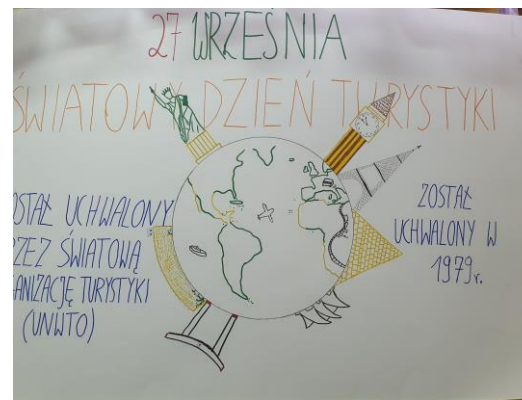 27 WRZEŚNIA
ŚWIATOWY DZIEŃ TURYSTYKI
OSTAŁ UCHWALONY
RZEZ ŚWIATOWĄ
ANIZACJĘ TURYSTYKI
(UNWTO)
ZOSTAŁ
UCHWALONY W
1979r.